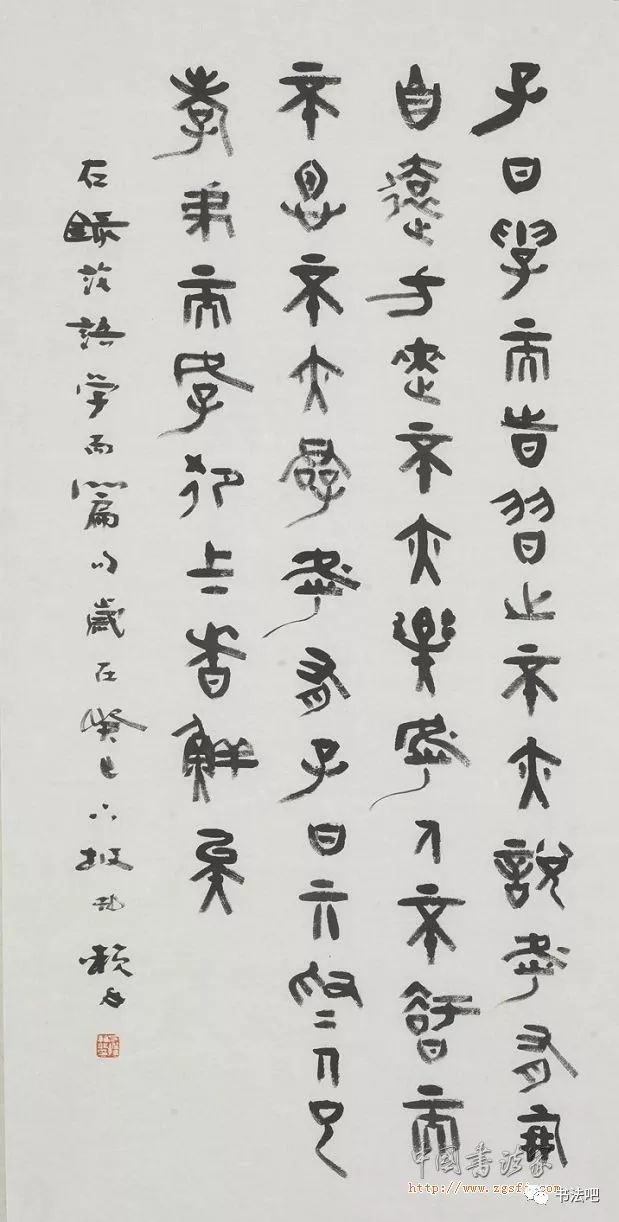 子曰學而時習之不亦說乎有朋
自遠方來不亦樂乎人不智而
不慍不亦君子乎有子曰亓為人也
孝弟而好犯上者鮮矣
右錄論語學而篇句歲在癸巳
中國書法家
http://www.zgsfj.com
书法吧